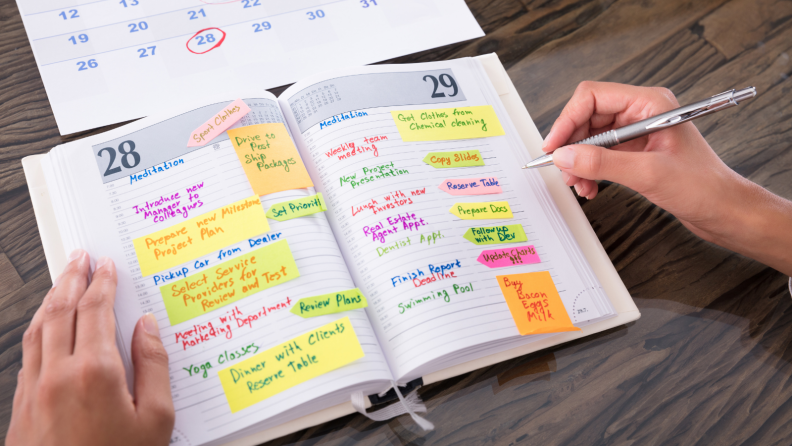 12 13 21
19 20 21 22 23 24
26 27 28 29 30 31
28
Meditation
Sport Clothes
Drive to
Post
Ship
Packages
Introduce new
Manager to
colleagues
Set Prioriti
Prepare new Milestone
Project Plan
Pickup Car from Dealer
Select Service
Providers for
Review and Test
Review Plans
Meeting with
Marketing Department
Yoga Classes
Dinner with Clients
Reserve Table
29
Meditation
Got Clothes from
Chemical cleaning
Weekly team
meeting
Copy Slides
New Project
Presentation
Reserve Table
Lunch with new
investors
Prepare Docs
Real Estate
Agent Appt.
Followup
with Dev
Dentist Appt.
Update Charts
!!!
Finish Report
Deadline
Buy
Bacon
Eggs
Milk
Swimming Pool